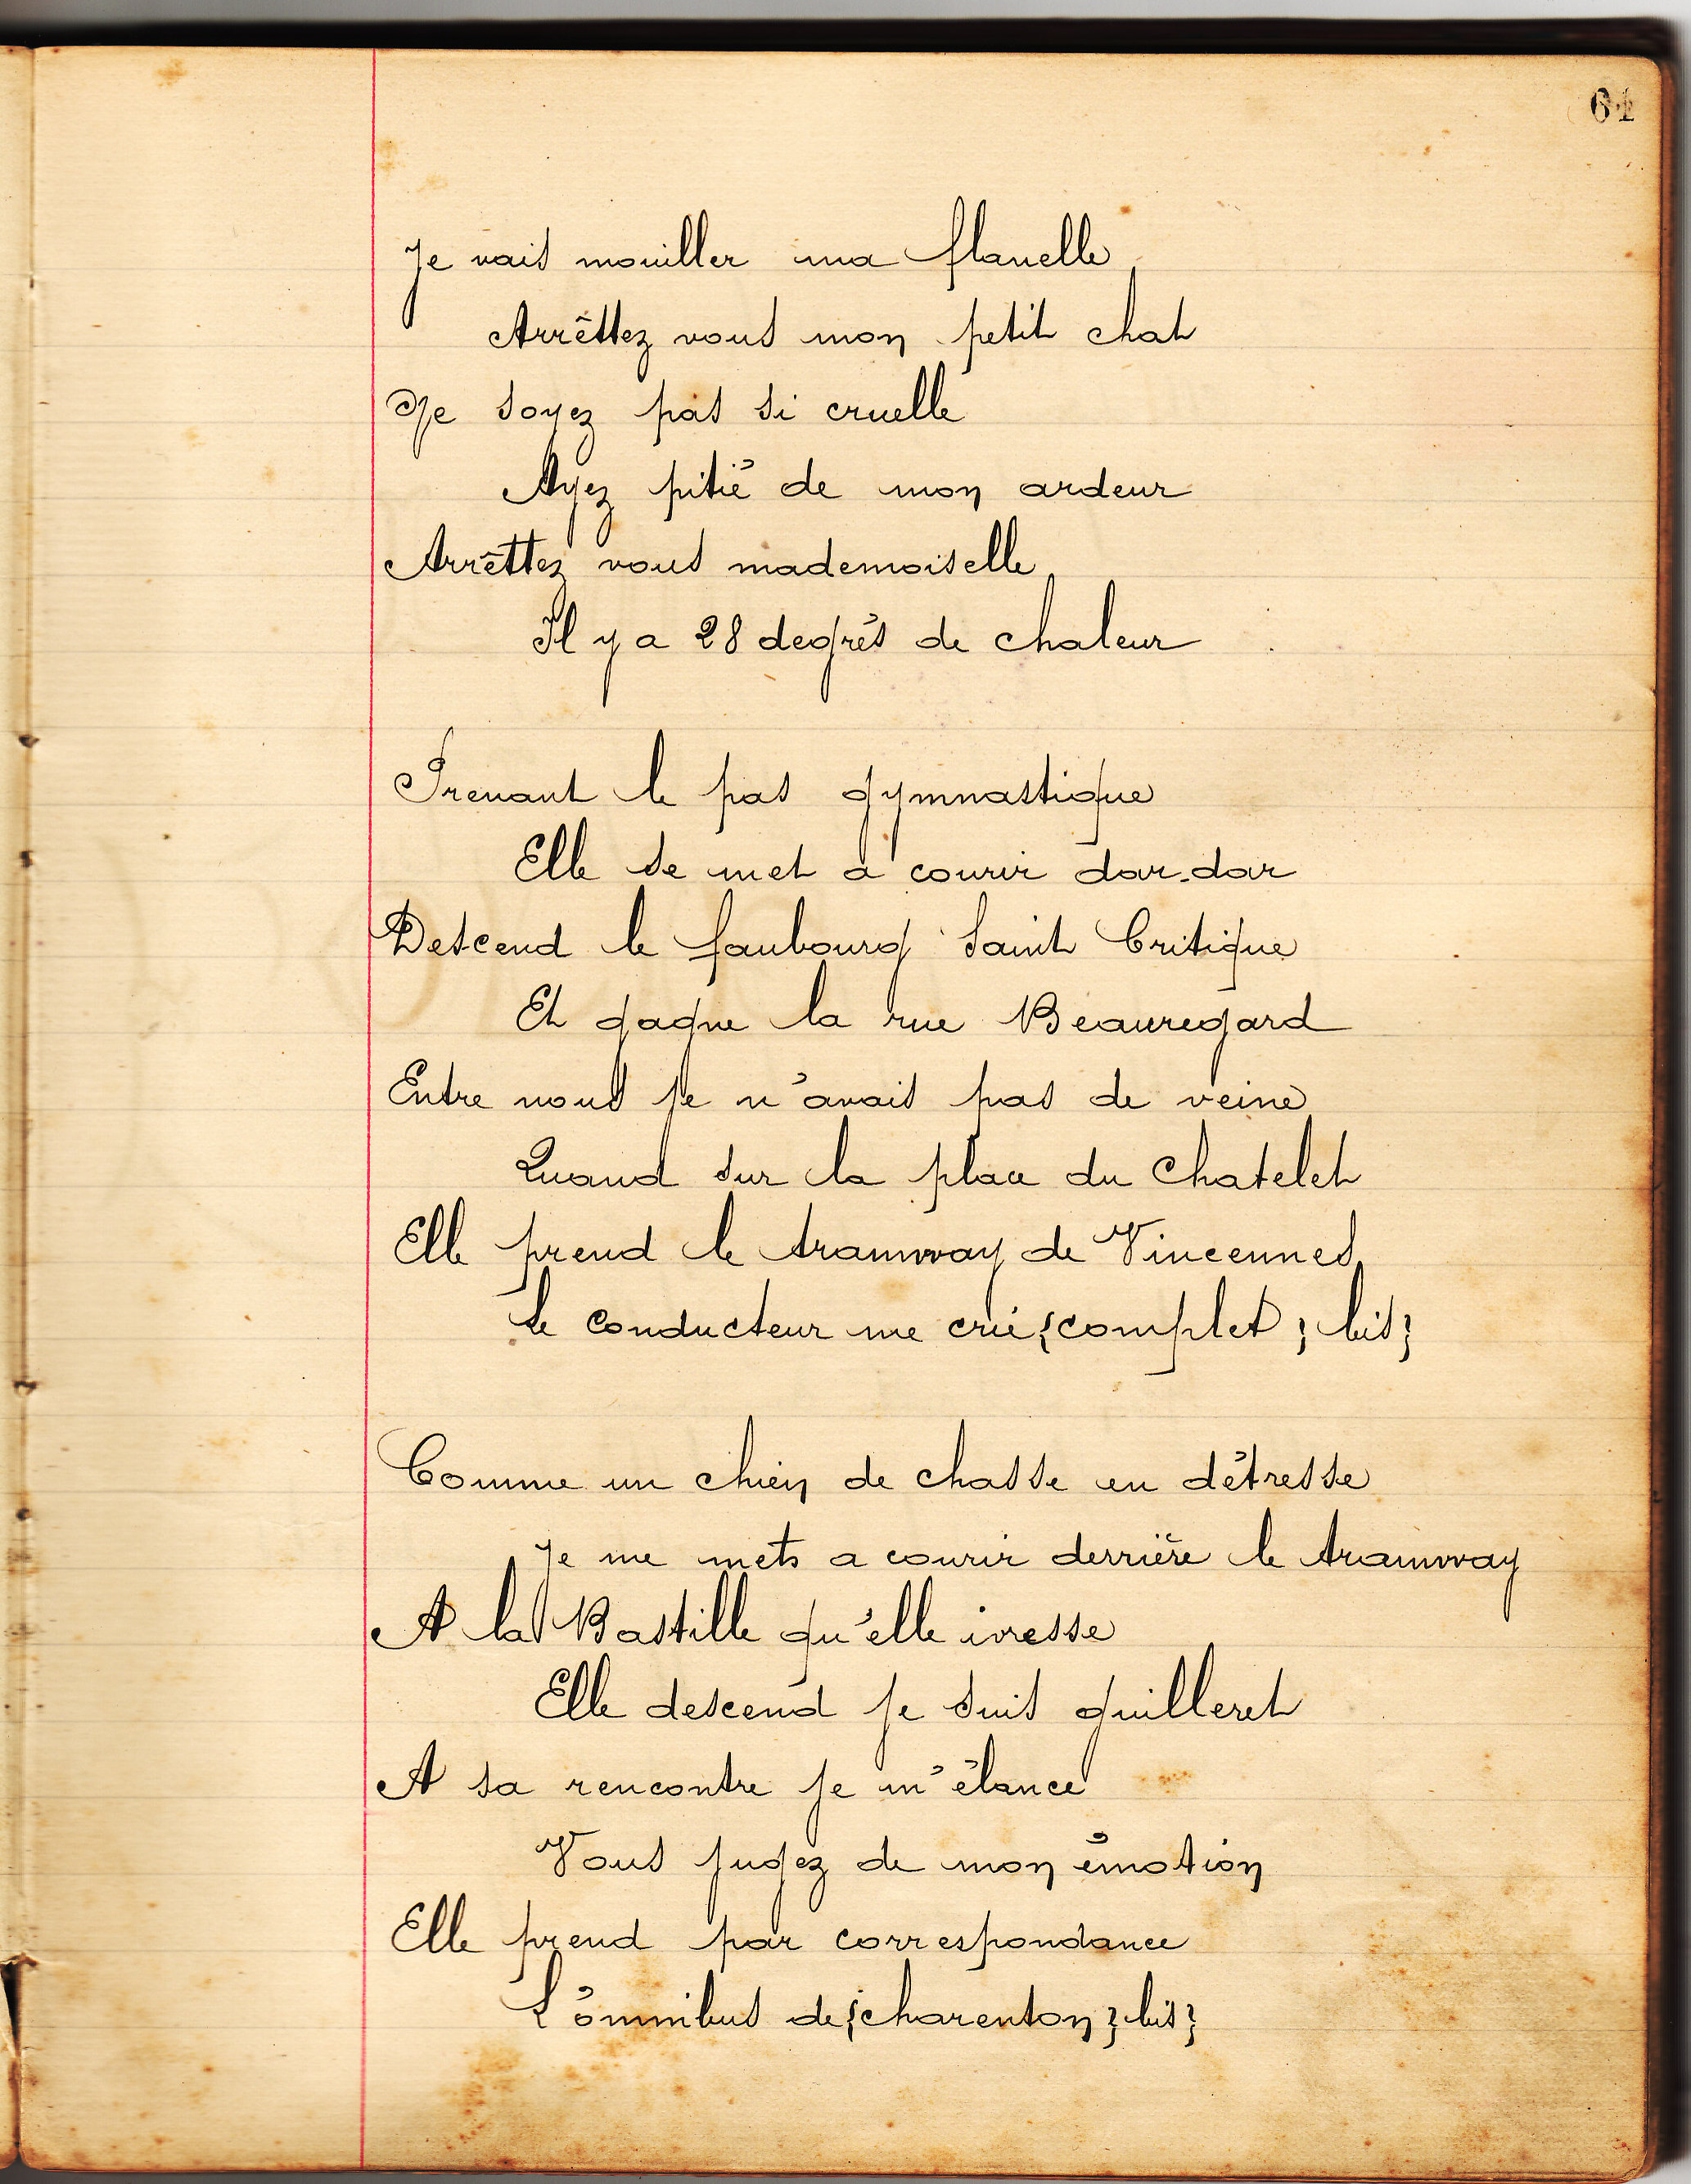 61
Je vais mouiller ma flanelle
Arrêttez vous mon petit chat
Ne soyez pas si cruelle
Ayez pitié de mon ardeur
Arrêttez vous mademoiselle
Il y a 28 degrés de chaleur
Prenant le pas gymnastique
Elle se met à courir dar-dar
Descend le faubourg Saint Critique
Et gagne la rue Beauregard
Entre nous je n'avais pas de veine
Quand sur la place du Chatelet
Elle prend le tramway de Vincennes
Le conducteur me crie {complet } bis }
Comme un chien de chasse en détresse
Je me mets a courir derrière le tramway
A la Bastille qu'elle ivresse
Elle descend je suis guilleret
A sa rencontre je m'élance
Vous jugez de mon émotion
Elle prend par correspondance
L'omnibus de {charenton } bis }